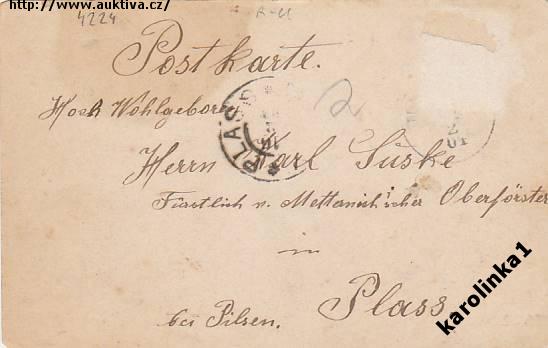 http://www.auktiva.cz/
4224
Postkarte.
2
Hoch Wohlgeboren
PLASS
Herrn Karl Süske
Fürstlich v. Mettanich'scher Oberförster
in
Plass
bei Pilsen.
karolinka1